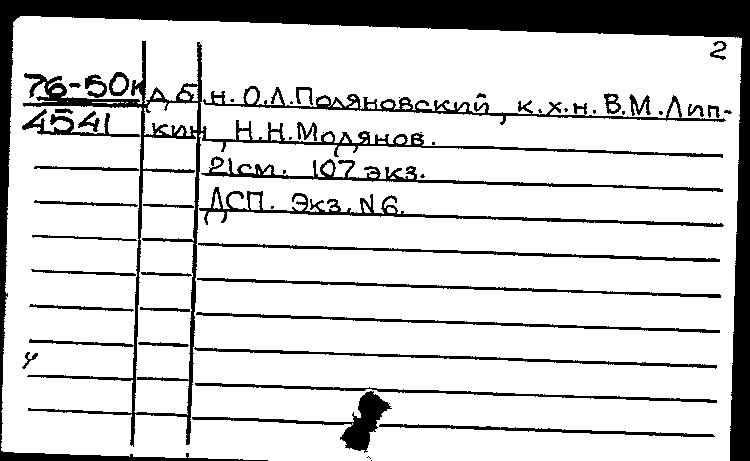 2
76-50к д.б.н. О.Л.Поляновский, к.х.н. В.М.Лип-
4541 кин, Н.Н.Модянов.
21см. 107 экз.
ДСП. Экз. N6.